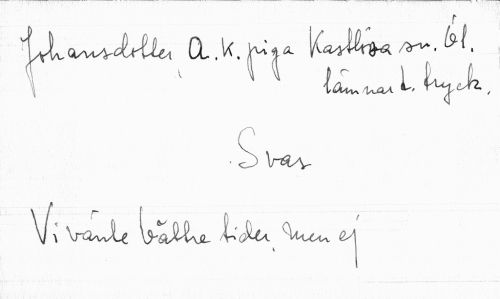 Johansdotter, A. K. piga Kastlösa sn. Öl.
lämnar t. tryck.
Svar
Vi vänte bättre tider, men ej